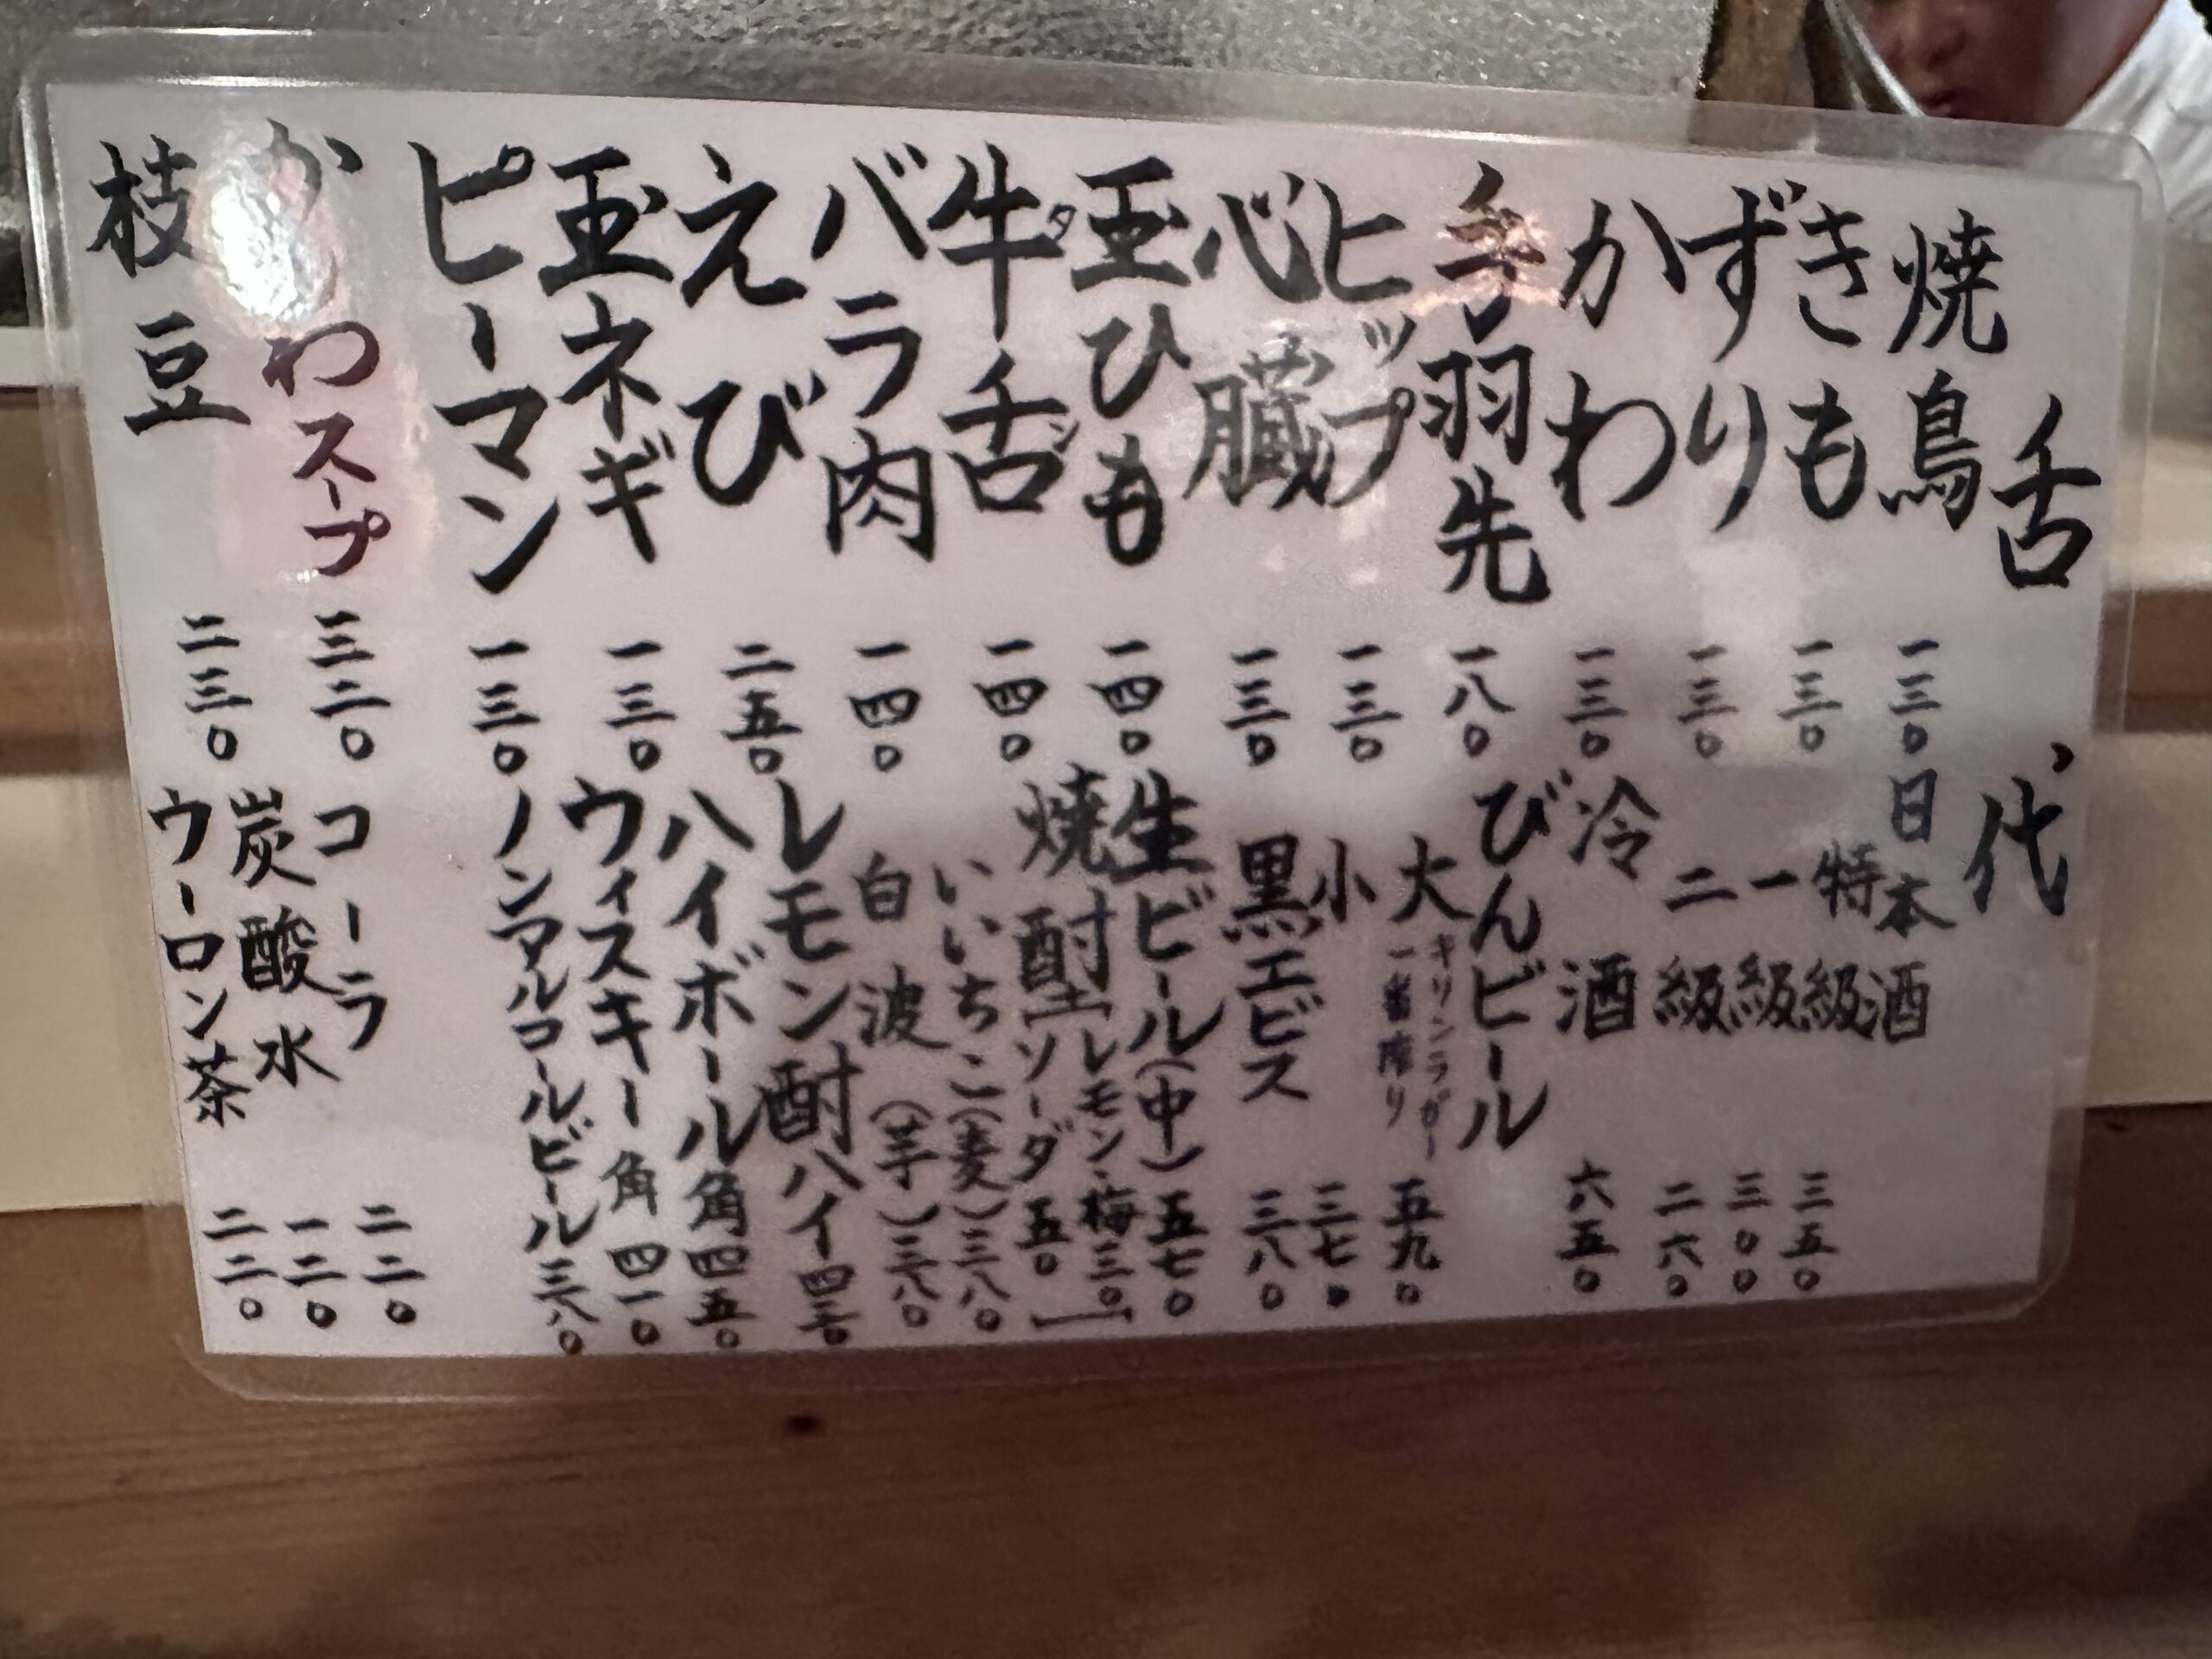 舌代
焼鳥 一三〇
きも 一三〇
ずり 一三〇
かわ 一三〇
手羽先 一八〇
ヒップ 一三〇
心臓 一三〇
玉ひも 一四〇
牛舌 一四〇
タン
バラ肉 一四〇
えび 二五〇
玉ネギ 一三〇
ピーマン 一三〇
かわスープ 三二〇
枝豆 二三〇
日本酒
特級 三五〇
一級 三〇〇
二級 二六〇
冷酒 六五〇
びんビール
キリンラガー
一番搾り
大 五九〇
小 三七〇
黒エビス 三八〇
生ビール(中) 五七〇
焼酎
レモン・梅 三〇
ソーダ 五〇
いいちこ(麦) 三八〇
白波(芋) 三八〇
レモン酎ハイ 四三〇
ハイボール角 四五〇
ウィスキー角 四一〇
ノンアルコールビール 三八〇
コーラ 二二〇
炭酸水 一三〇
ウーロン茶 二二〇